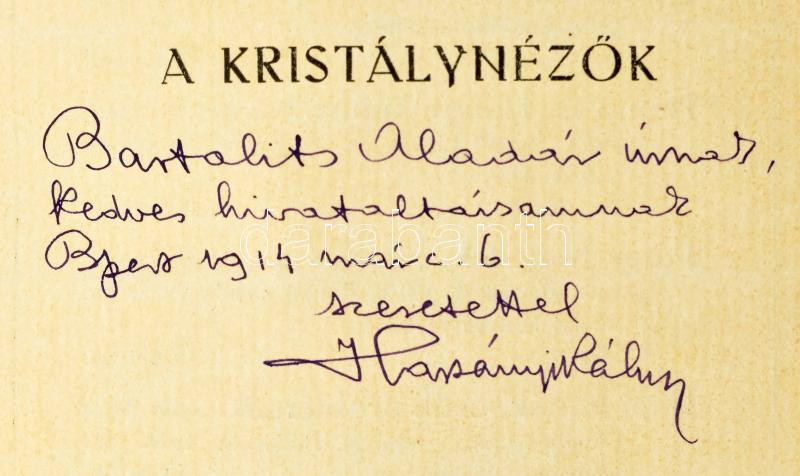 A KRISTÁLYNÉZŐK
Bartalits Aladár úrnak,
kedves hivataltársamnak
Bpest 1914 márc. 6.
darabanth
szeretettel
Harsányi Kálmán